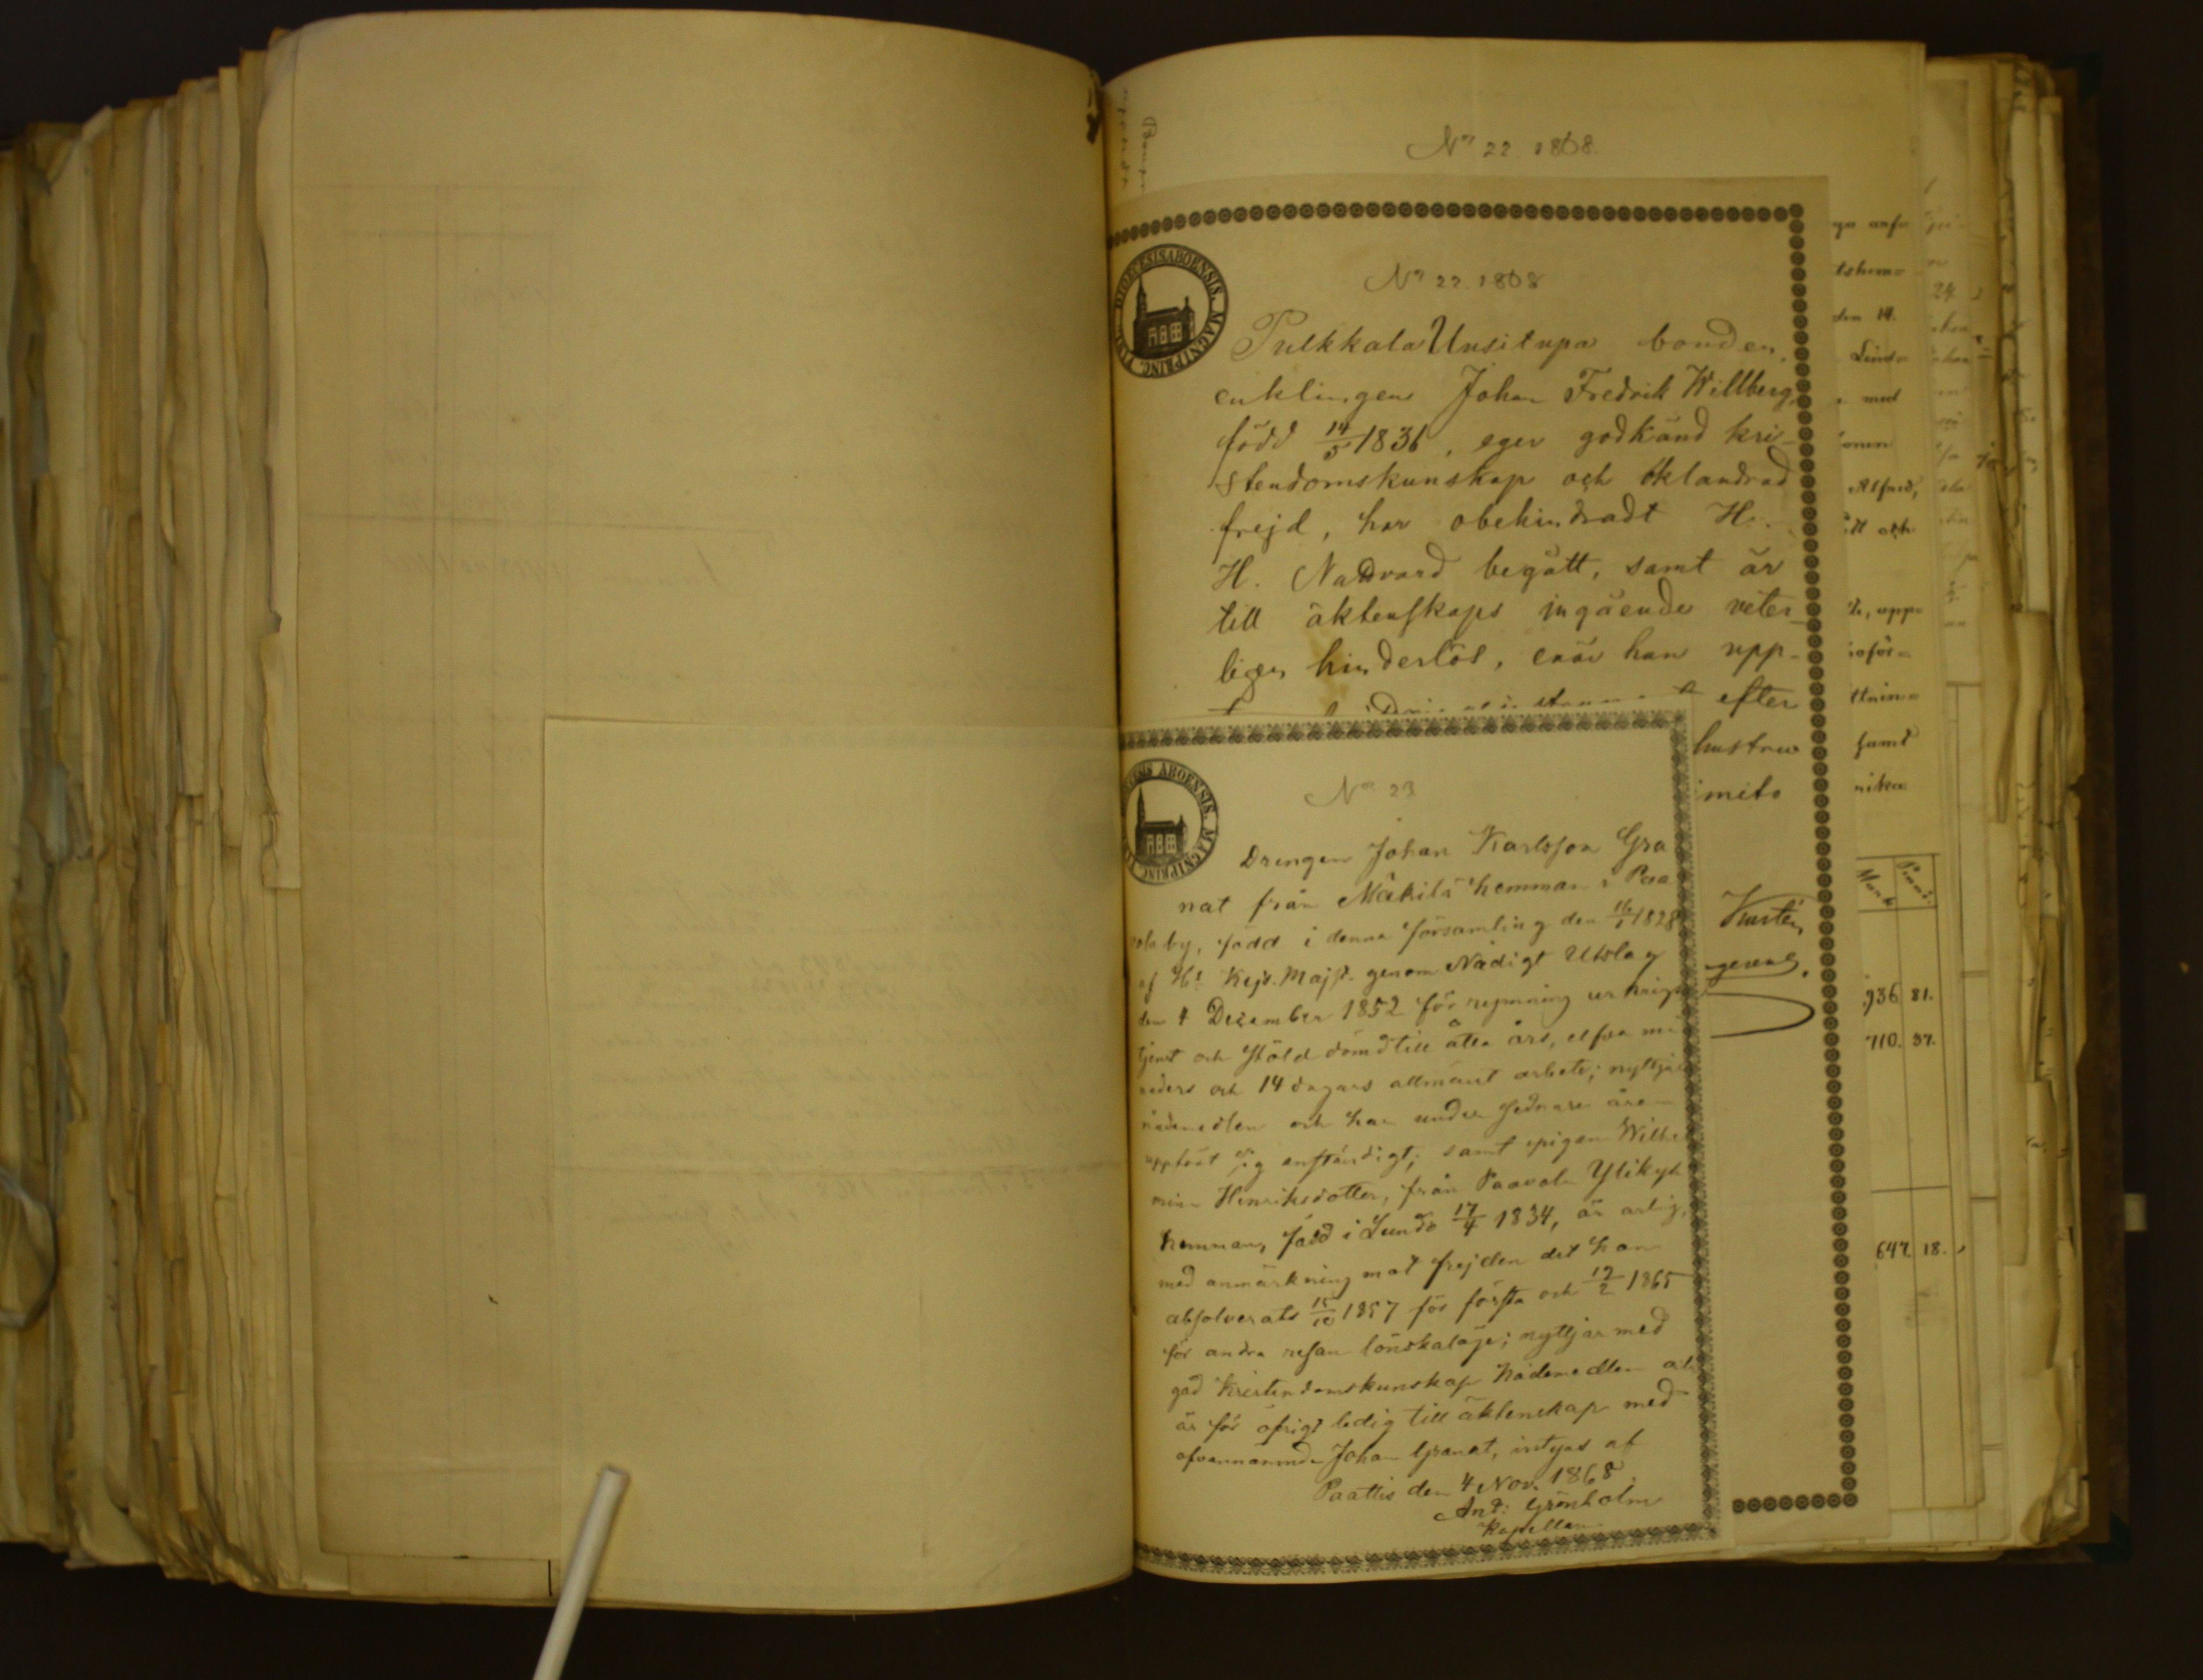 No 22. 1868.
No 22. 1868
Pulkkala Uusitupa bonden,
enklingen Johan Fredrik Willberg,
född 14/5 1836, eger godkänd kri-
stendomskunskap och oklandrad
frejd, har obehindradt H.
H. Nattvard begått, samt är
till äktenskaps ingående veter-
ligen hinderlös, enär han upp-
efter
hustru
mito
No 23
Drengen Johan Karlsson Gra
nat från Mäkilä hemman i Paa
vola by, född i denna församling den 16/1 1828
af Hs Kejs. Majst. genom Nådigt Utslag
den 4 December 1852 för rymning ur krigs
tjenst och stöld dömd till åtta års, elfva må
naders och 14 dagars allmänt arbete; nyttjar
nådemedlen och har under sednare åren
uppfört sig anständigt; samt pigan Wilhel
mina Henriksdotter, från Paavola Ylikylä
hemman, född i Lundo 17/4 1834, är ärlig,
med anmärkning mot frejden det hon
absolverats 15/10 1857 för första och 19/2 1865
för andra resan lönskaläge; nyttjar med
god kristendomskunskap nådemedlen och
är för öfrigt ledig till äktenskap med
ofvannämnde Johan Granat, intygas af
Paattis den 4 Nov. 1868.
And: Grönholm
Kapellan
DIOECESIS ABOENSIS. MAGNI PRINC.
DIOECESIS ABOENSIS. MAGNI PRINC.
den 14.
med
Alfred,
samt
Mark
936 81.
710. 37.
647. 18.